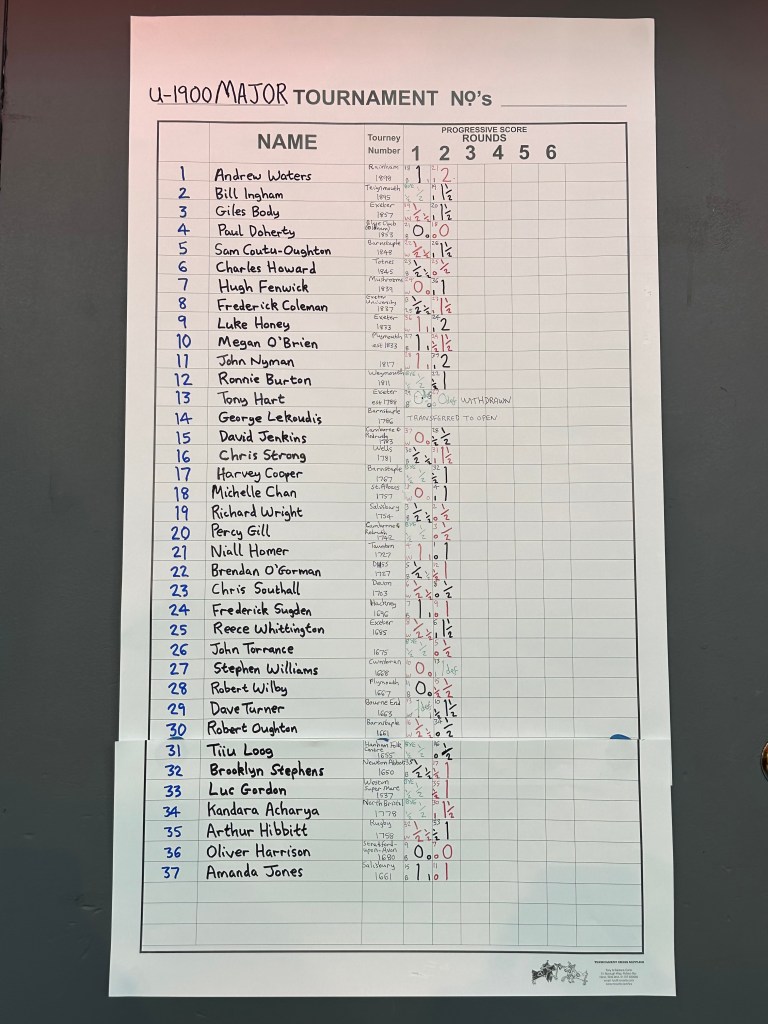 U-1900 MAJOR TOURNAMENT Nº's
PROGRESSIVE SCORE
NAME Tourney Number ROUNDS
1 2 3 4 5 6
1 Andrew Waters Rainham 1898 1 2
2 Bill Ingham Teignmouth 1895 BYE ½ 1½
3 Giles Body Exeter 1857 ½ 1½
4 Paul Doherty 1853 0 0
5 Sam Coutu-Oughton Barnstaple 1848 ½ 1½
6 Charles Howard Totnes 1845 ½ ½
7 Hugh Fenwick Mushrooms 1839 0 1
8 Frederick Coleman Exeter University 1837 ½ 1½
9 Luke Honey Exeter 1833 1 2
10 Megan O'Brien Plymouth est 1833 1 1½
11 John Nyman 1817 1 2
12 Ronnie Burton Weymouth 1811 BYE ½ 1
13 Tony Hart Exeter est 1788 0def 0def WITHDRAWN
14 George Lekoudis Barnstaple 1786 TRANSFERRED TO OPEN
15 David Jenkins Camborne & Redruth 1783 0 ½
16 Chris Strong Wells 1781 ½ 1½
17 Harvey Cooper Barnstaple 1767 BYE ½ 1
18 Michelle Chan St. Albans 1757 0 1
19 Richard Wright Salisbury 1754 ½ ½
20 Percy Gill Camborne & Redruth 1742 BYE ½ ½
21 Niall Homer Taunton 1727 1 1
22 Brendan O'Gorman DHSS 1727 ½ 1
23 Chris Southall Devon 1703 ½ ½
24 Frederick Sugden Hackney 1696 1 1
25 Reece Whittington Exeter 1685 ½ 1½
26 John Torrance 1675 BYE ½ ½
27 Stephen Williams Cwmbran 1668 0 1def
28 Robert Wilby Plymouth 1667 0 ½
29 Dave Turner Bourne End 1663 1def 1½
30 Robert Oughton Barnstaple 1661 ½ ½
31 Tiiu Loog Hanham Folk Centre 1655 BYE ½ ½
32 Brooklyn Stephens Newton Abbot 1650 ½ 1
33 Luc Gordon Weston Super Mare 1537 BYE ½ 1
34 Kandara Acharya North Bristol 1778 BYE ½ 1½
35 Arthur Hibbitt Rugby 1758 ½ 1
36 Oliver Harrison Stratford-upon-Avon 1680 0 0
37 Amanda Jones Salisbury 1661 1 1